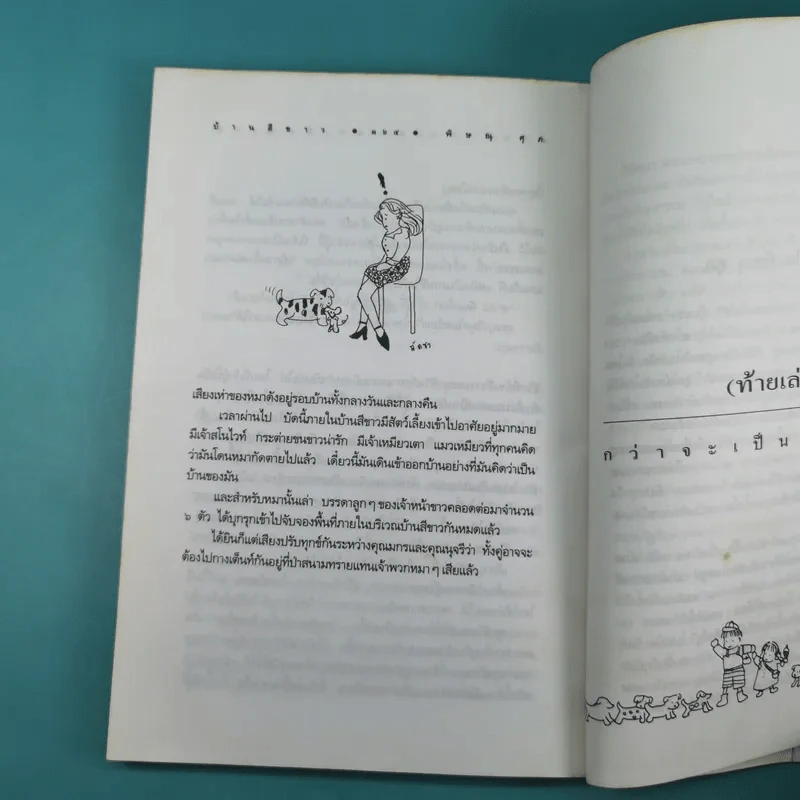 บ้านสีขาว • ๓๖๔ • พิษณุ ศุภ
!
นัดชา
เสียงเห่าของหมาดังอยู่รอบบ้านทั้งกลางวันและกลางคืน
เวลาผ่านไป บัดนี้ภายในบ้านสีขาวมีสัตว์เลี้ยงเข้าไปอาศัยอยู่มากมาย
มีเจ้าสโนไวท์ กระต่ายขนขาวน่ารัก มีเจ้าเหมียวเตา แมวเหมียวที่ทุกคนคิด
ว่ามันโดนหมากัดตายไปแล้ว เดี๋ยวนี้มันเดินเข้าออกบ้านอย่างที่มันคิดว่าเป็น
บ้านของมัน
และสำหรับหมานั้นเล่า บรรดาลูกๆ ของเจ้าหน้าขาวคลอดต่อมาจำนวน
๖ ตัว ได้บุกรุกเข้าไปจับจองพื้นที่ภายในบริเวณบ้านสีขาวกันหมดแล้ว
ได้ยินก็แต่เสียงปรับทุกข์กันระหว่างคุณมกรและคุณนุจรีว่า ทั้งคู่อาจจะ
ต้องไปกางเต็นท์กันอยู่ที่ป่าสนามทรายแทนเจ้าพวกหมาๆ เสียแล้ว
(ท้ายเล่
กว่าจะเป็น